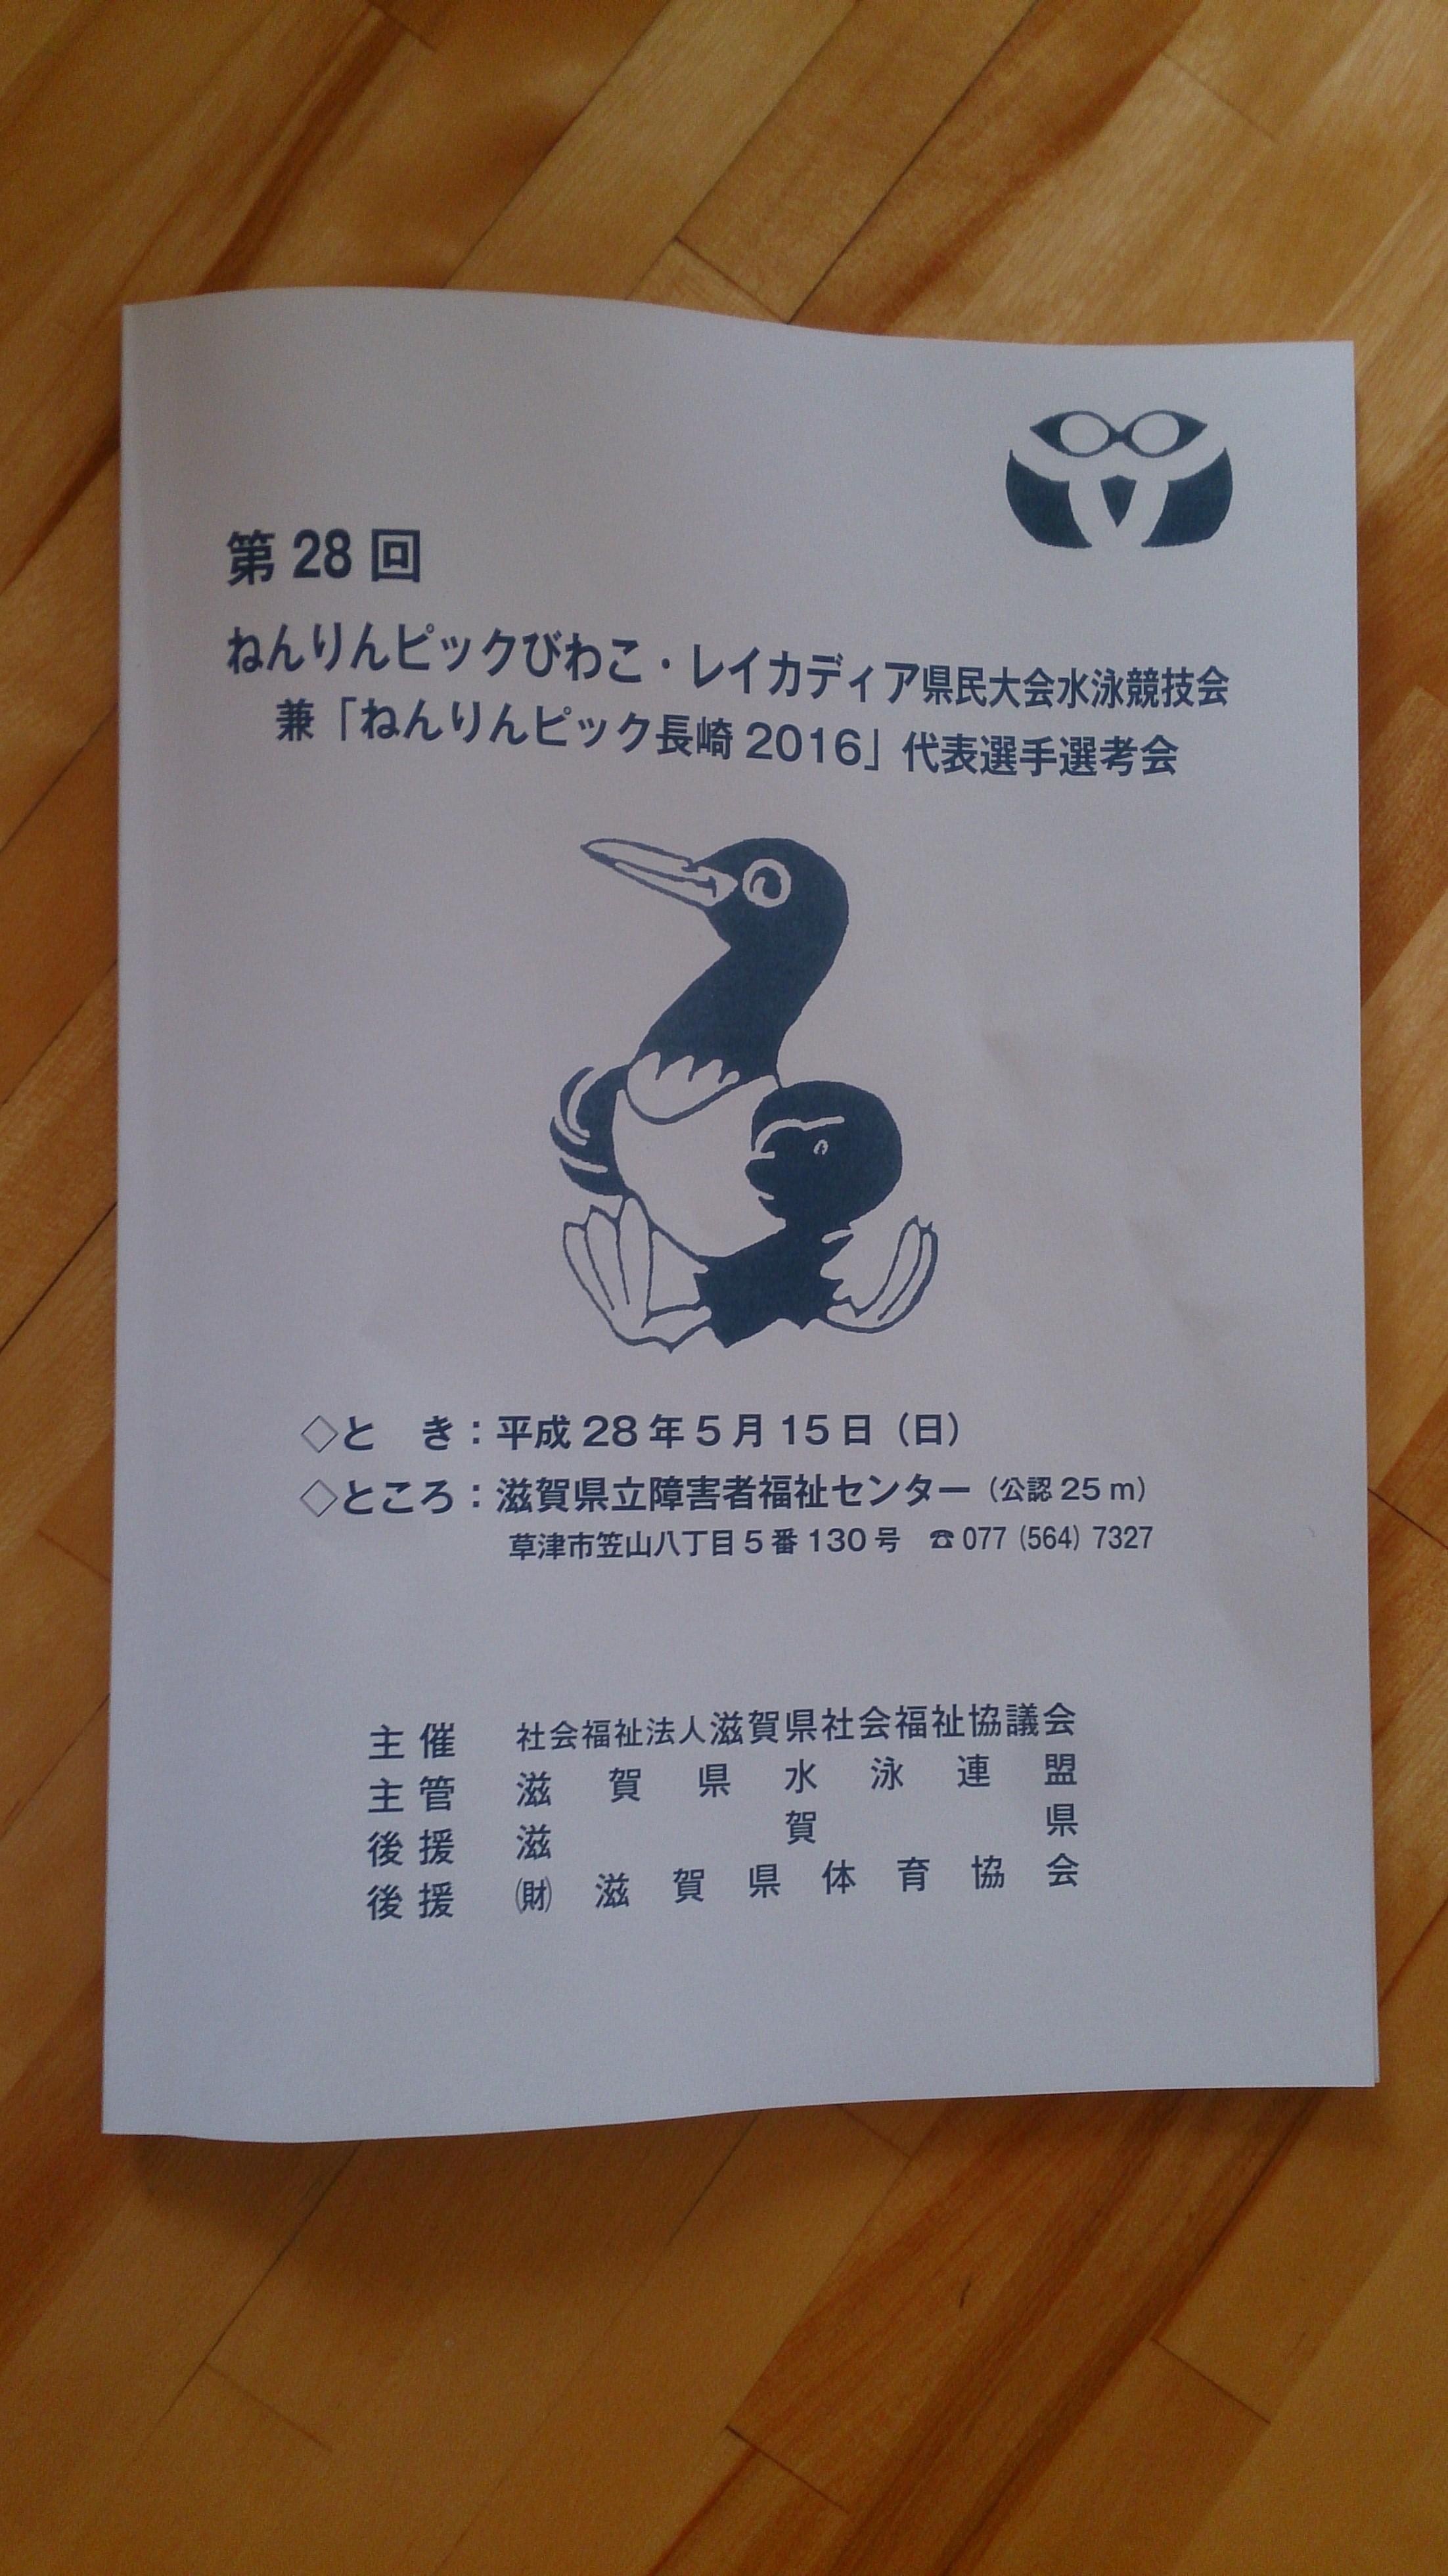 第28回
ねんりんピックびわこ・レイカディア県民大会水泳競技会
兼「ねんりんピック長崎2016」代表選手選考会
◇と　き：平成28年5月15日（日）
◇ところ：滋賀県立障害者福祉センター（公認25m）
草津市笠山八丁目5番130号　☎077（564）7327
主催　社会福祉法人滋賀県社会福祉協議会
主管　滋賀県水泳連盟
後援　滋賀県
後援　㈶滋賀県体育協会